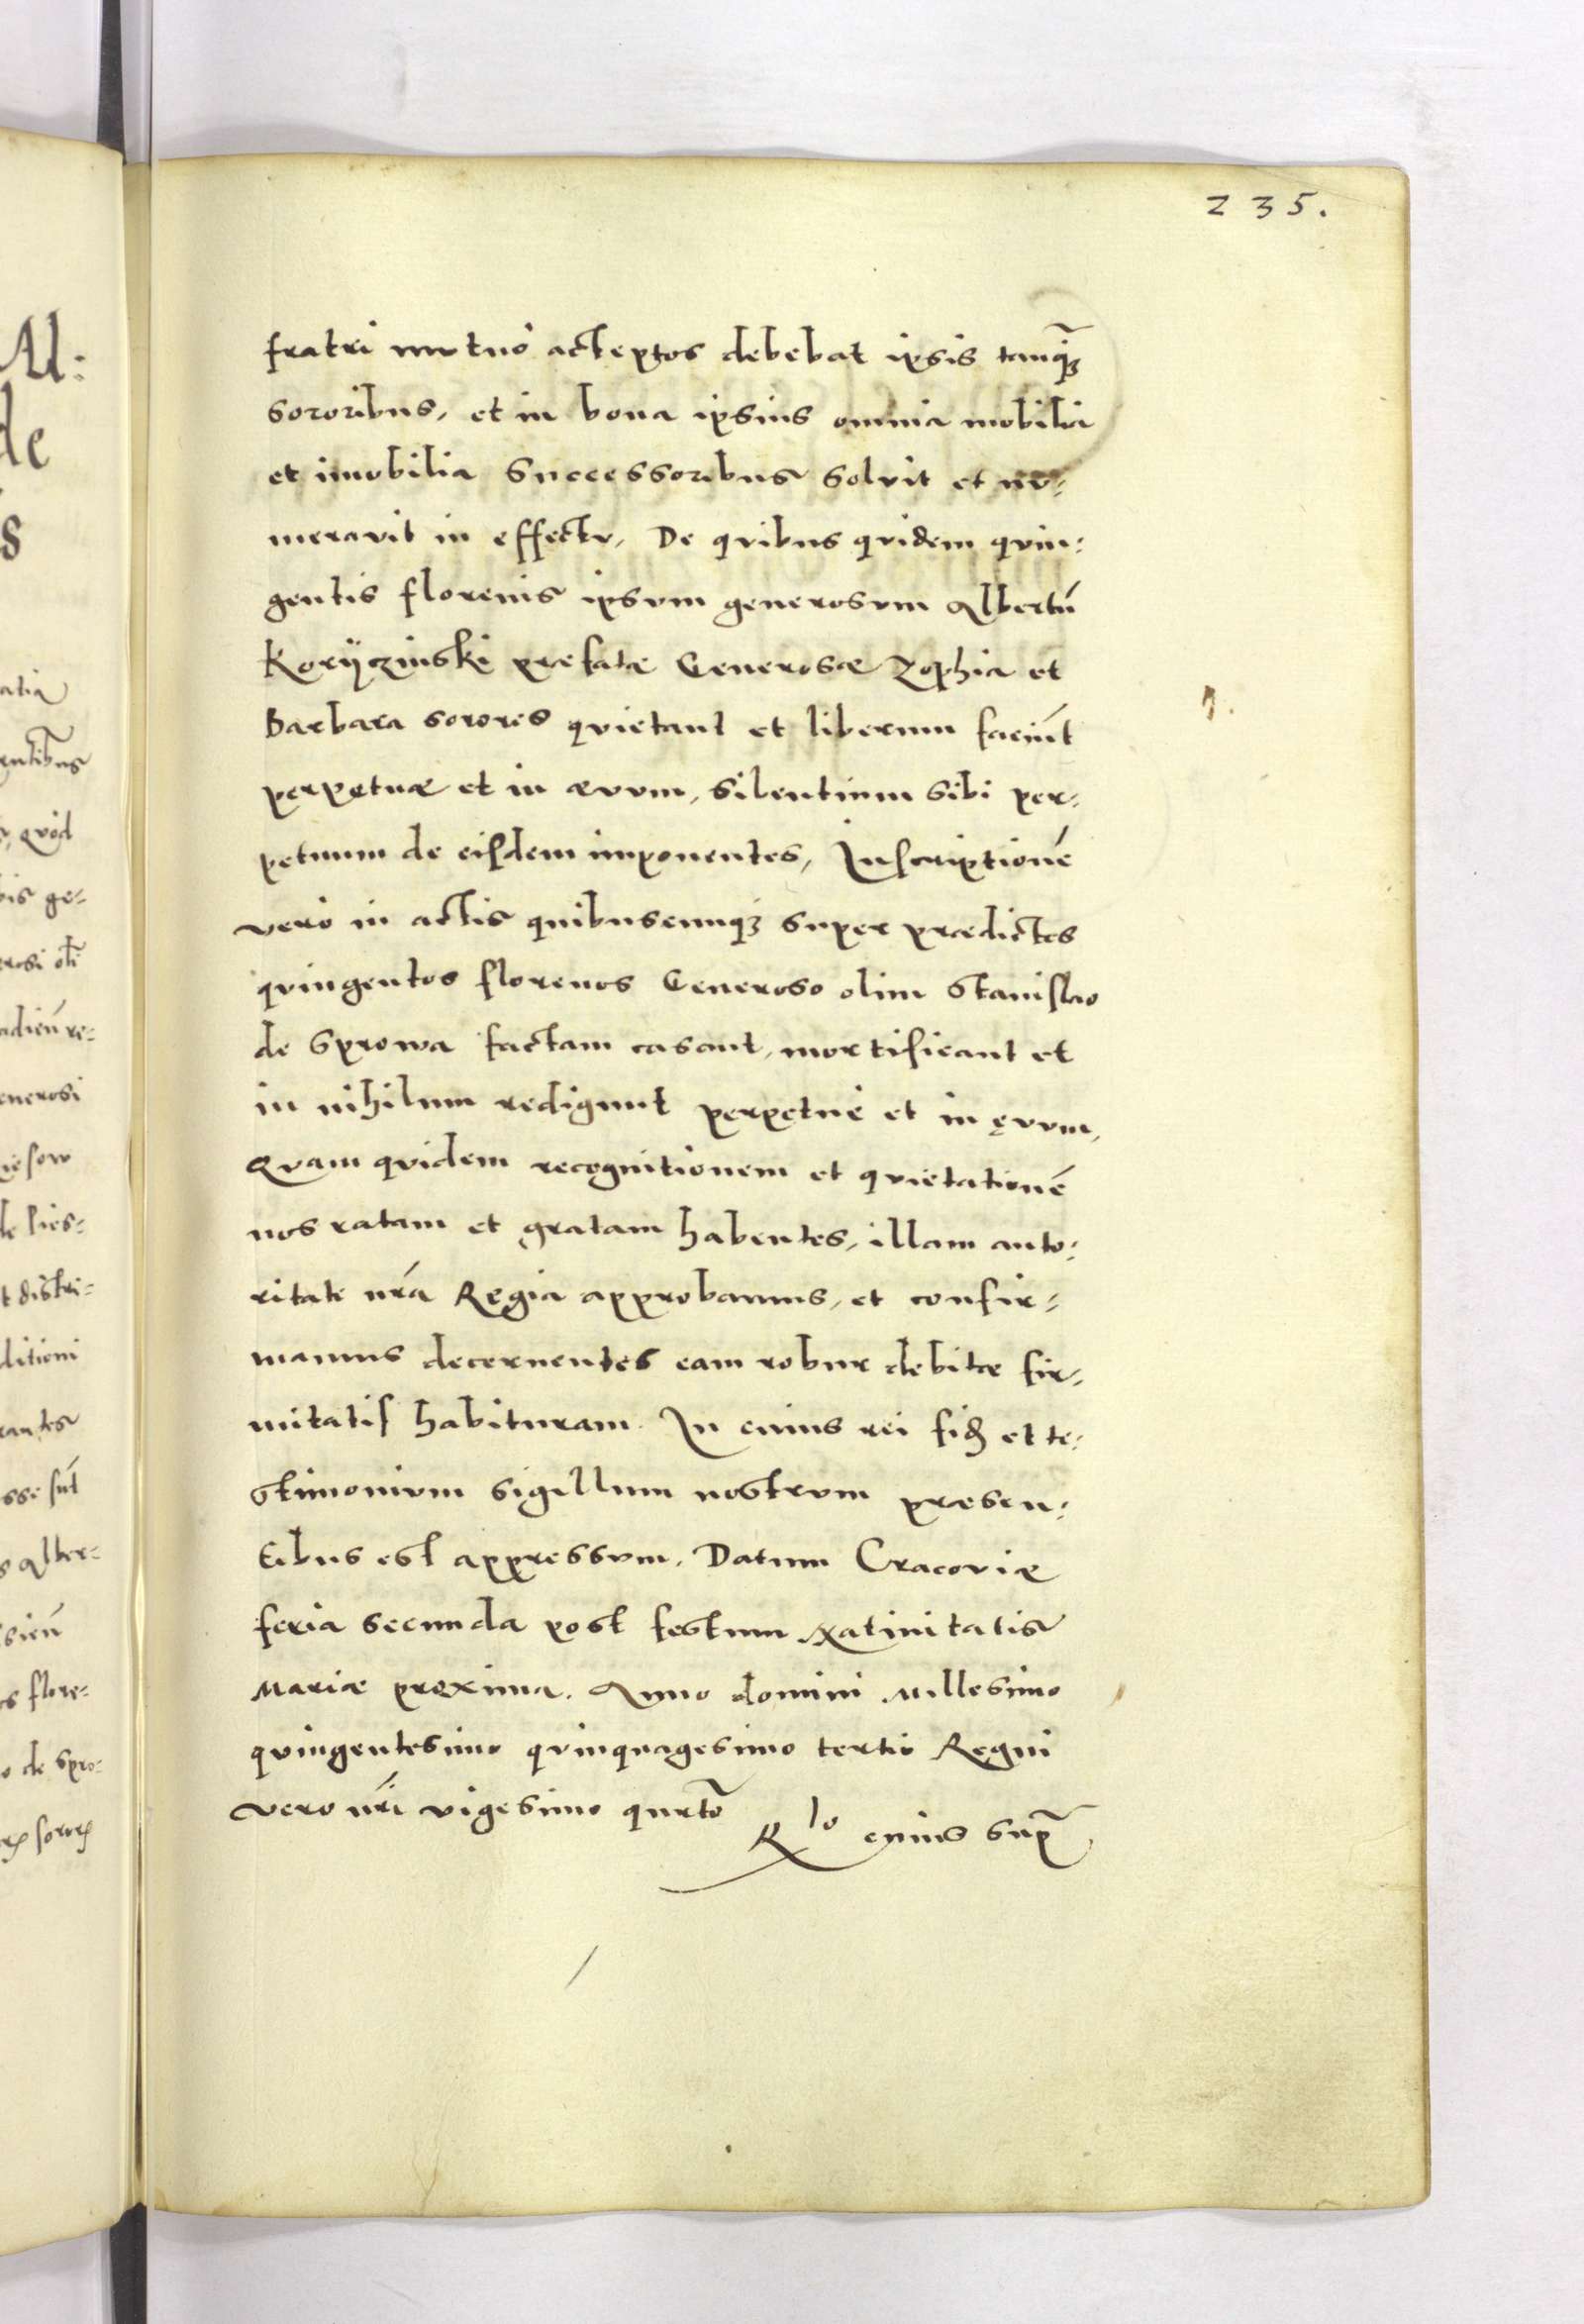 235.
fratri mutuo acceptos debebat ipsis tanq̃
sororibus, et in bona ipsius omnia mobilia
et imobilia successoribus solvit et nu-
meravit in effectu, De quibus quidem quin-
gentis florenis ipsum generosum Albertũ
Koryczinski præfatæ Generosæ Zophia et
Barbara sorores quietant et liberum faciũt
perpetuæ et in ævum, silentium sibi per-
petuum de eisdem imponentes, Inscriptionẽ
vero in actis quibuscunq; super prædictos
quingentos florenos Generoso olim Stanislao
de Sprowa factam casant, mortificant et
in nihilum redigunt perpetue et in ęvum,
Quam quidem recognitionem et quietationẽ
nos ratam et gratam habentes, illam auto-
ritate nr̃a Regia approbamus, et confir-
mamus decernentes eam robur debitæ fir-
mitatis habituram. In cuius rei fidẽ et te-
stimonium sigillum nostrum præsen-
tibus est appressum. Datum Cracoviæ
feria secunda post festum Natiuitatis
Mariæ proxima. Anno domini Millesimo
quingentesimo quinquagesimo tertio Regni
vero nr̃i vigesimo quarto
R lo cuius sup̃